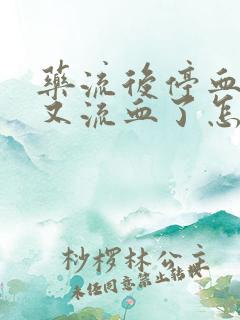 藥流後停血
又流血了怎
杪欏林公主
未经同意禁止转载